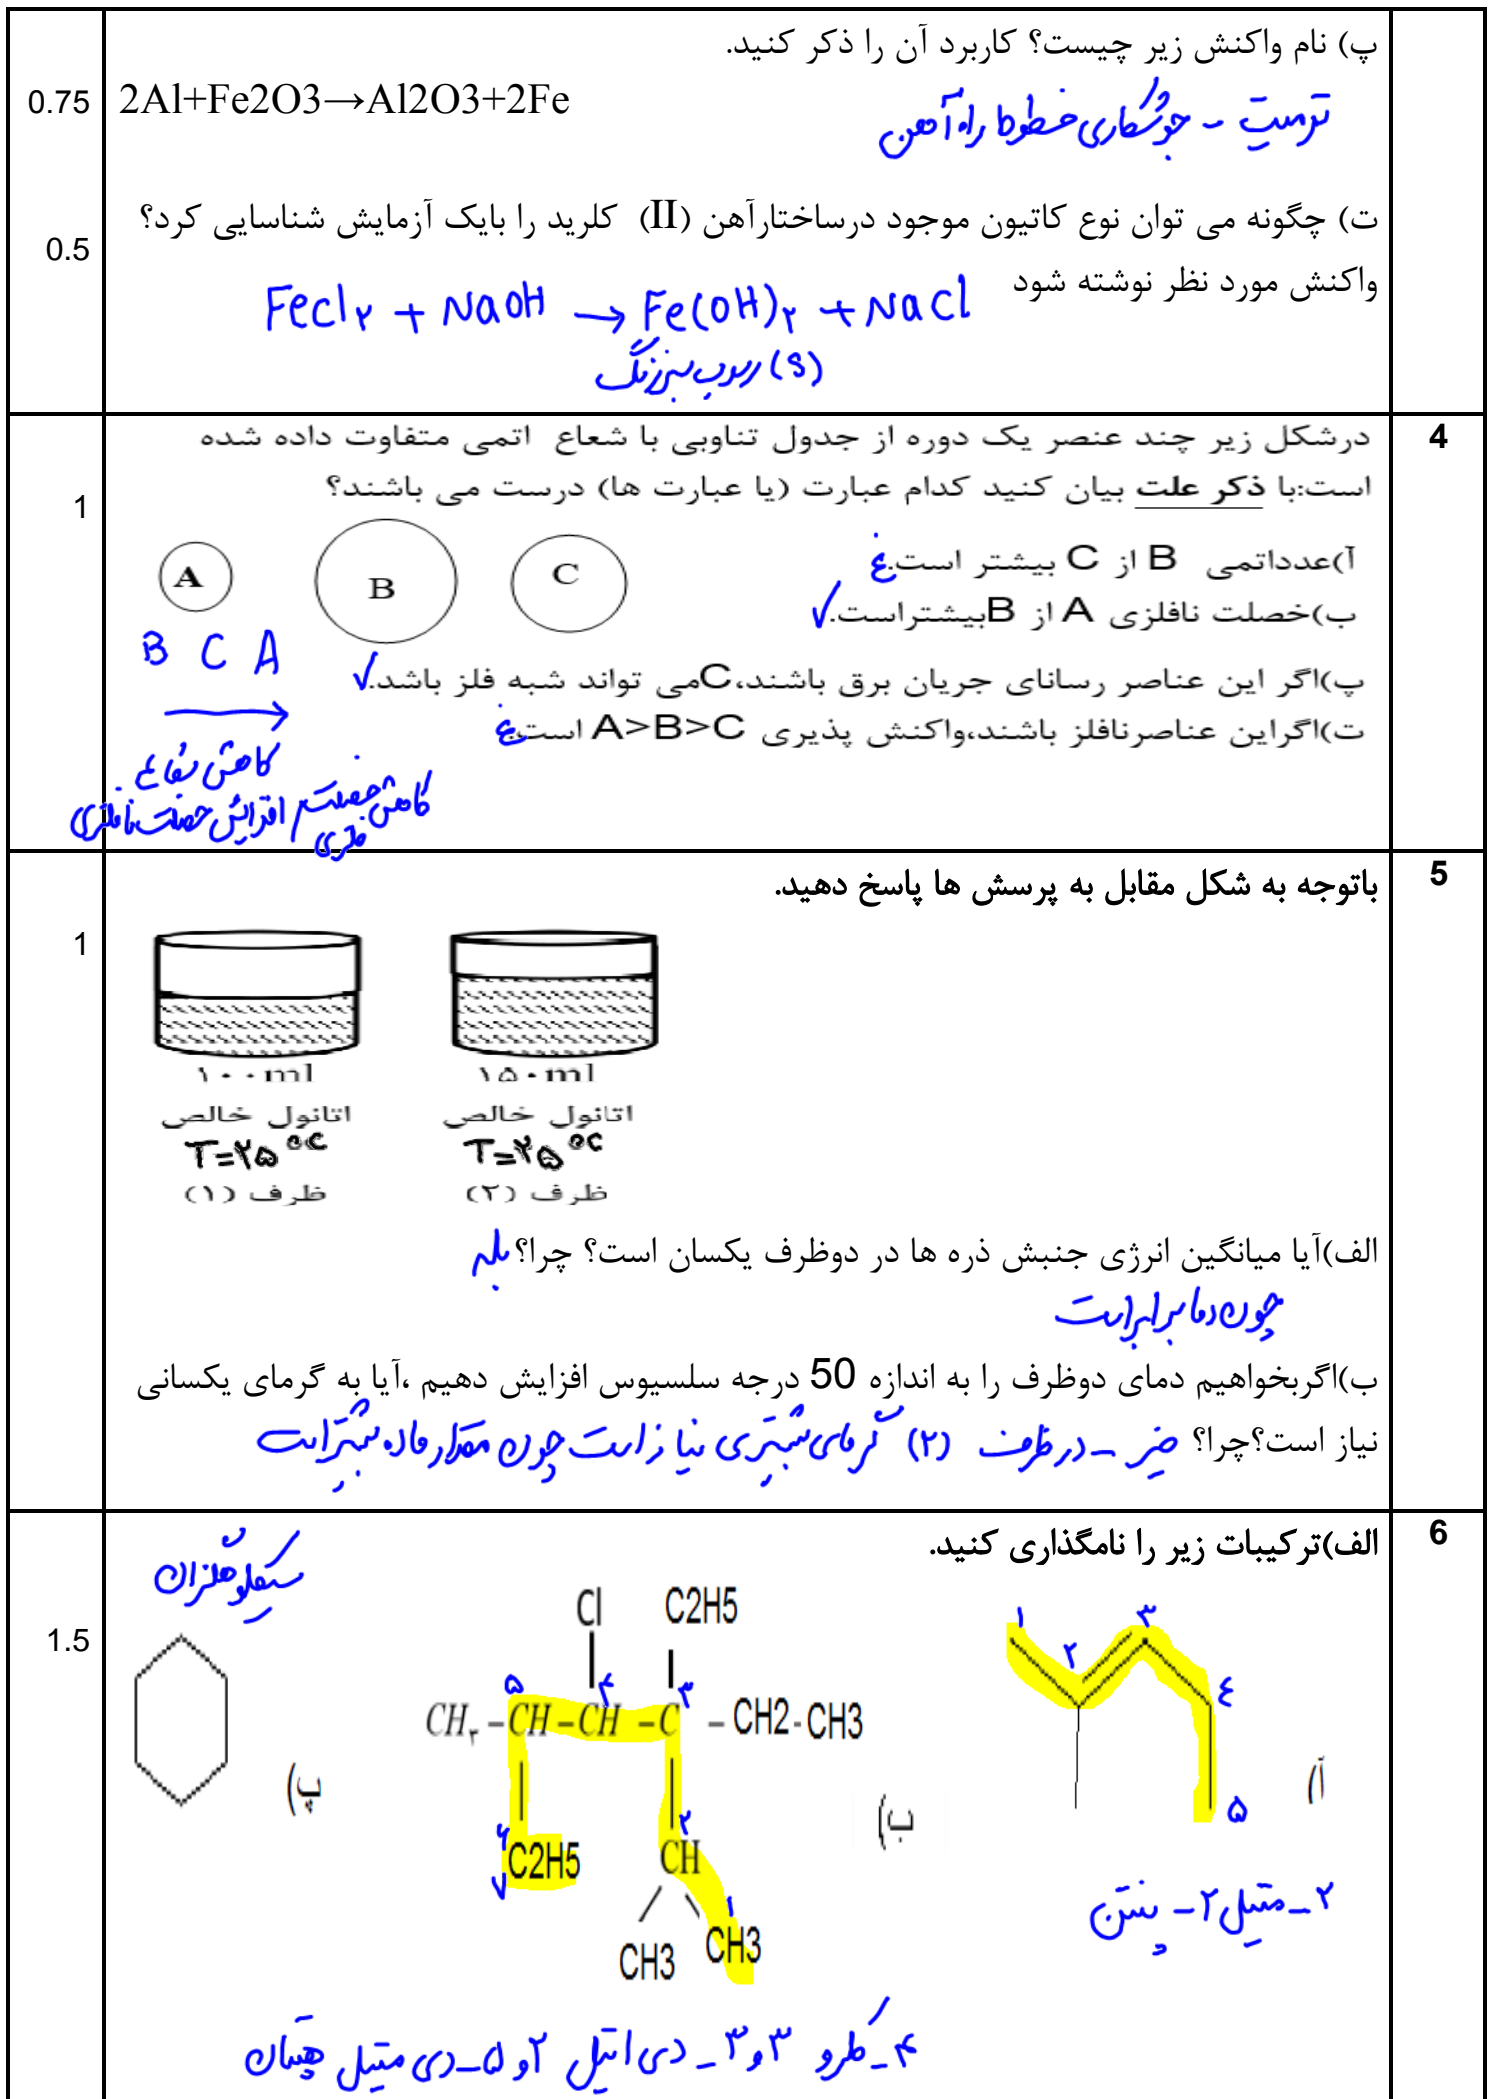 پ) نام واکنش زیر چیست؟ کاربرد آن را ذکر کنید.
0.75
2Al+Fe2O3→Al2O3+2Fe
ترمیت - جوشکاری خطوط راه آهن
ت) چگونه می توان نوع کاتیون موجود درساختارآهن (II) کلرید را بایک آزمایش شناسایی کرد؟
0.5
واکنش مورد نظر نوشته شود
FeCl۲ + NaOH → Fe(OH)۲ + NaCl
(s) رسوب سبزرنگ
4
درشکل زیر چند عنصر یک دوره از جدول تناوبی با شعاع اتمی متفاوت داده شده
است:با ذکر علت بیان کنید کدام عبارت (یا عبارت ها) درست می باشند؟
1
A
B
C
آ)عدداتمی B از C بیشتر است.غ
ب)خصلت نافلزی A از Bبیشتراست.✓
B C A
پ)اگر این عناصر رسانای جریان برق باشند،Cمی تواند شبه فلز باشد.✓
ت)اگراین عناصرنافلز باشند،واکنش پذیری A>B>C است.غ
کاهش شعاع
کاهش خصلت فلزی / افزایش خصلت نافلزی
5
باتوجه به شکل مقابل به پرسش ها پاسخ دهید.
1
۱۰۰ml
۱۵۰ml
اتانول خالص
اتانول خالص
T=۲۵°C
T=۲۵°C
ظرف (۱)
ظرف (۲)
الف)آیا میانگین انرژی جنبش ذره ها در دوظرف یکسان است؟ چرا؟ بله
چون دما برابر است
ب)اگربخواهیم دمای دوظرف را به اندازه 50 درجه سلسیوس افزایش دهیم ،آیا به گرمای یکسانی
نیاز است؟چرا؟ خیر - در ظرف (۲) گرمای بیشتری نیاز است چون مقدار ماده بیشتر است
6
الف)ترکیبات زیر را نامگذاری کنید.
1.5
سیکلوهگزان
آ)
۱
۲
۳
٤
۵
۲-متیل ۲- پنتن
ب)
Cl
C2H5
۵
۴
۳
CH۳ –CH –CH –C – CH2-CH3
۶
۷
C2H5
۲
CH
۱
CH3
CH3
پ)
۴-کلرو ۳و۳- دی اتیل ۲و۵-دی متیل هپتان